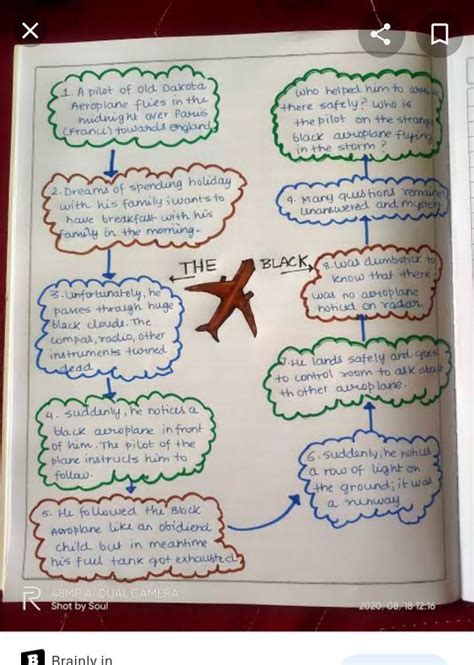 1. A pilot of old Dakota
Aeroplane flies in the
midnight over Paris
(France) towards england
2. Dreams of spending holiday
with his family; wants to
have breakfast with his
family in the morning.
3. Unfortunately, he
passes through huge
black clouds. The
compas, radio, other
instruments turned
dead
4. Suddenly, he notices a
black aeroplane in front
of him. The pilot of the
plane instructs him to
follow.
5. He followed the Black
Aeroplane like an obidiend
child but in meantime
his fuel tank got exhausted
THE BLACK
who helped him to
there safely? Who is
the pilot on the strang
black aeroplane flying
in the storm?
9. Many questions remained
unanswered and mystery
8. Was dumbstick to
know that there
was no aeroplane
noticd on radar
7. He lands safely and goes
to control room to ask abo
th other aeroplane.
6. Suddenly, he notices
a row of light on
the ground; it wa
a runway
48MP AI DUAL CAMERA
Shot by Soul
2020/08/18 12:16
Brainly.in